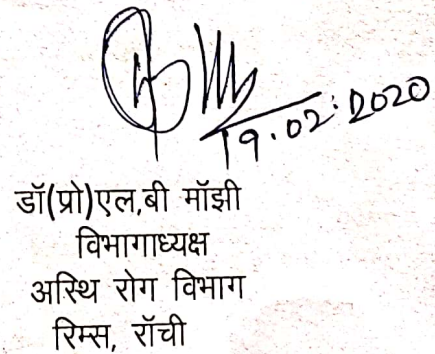 19.02.2020
डॉ(प्रो)एल,बी मॉझी
विभागाध्यक्ष
अस्थि रोग विभाग
रिम्स, रॉची